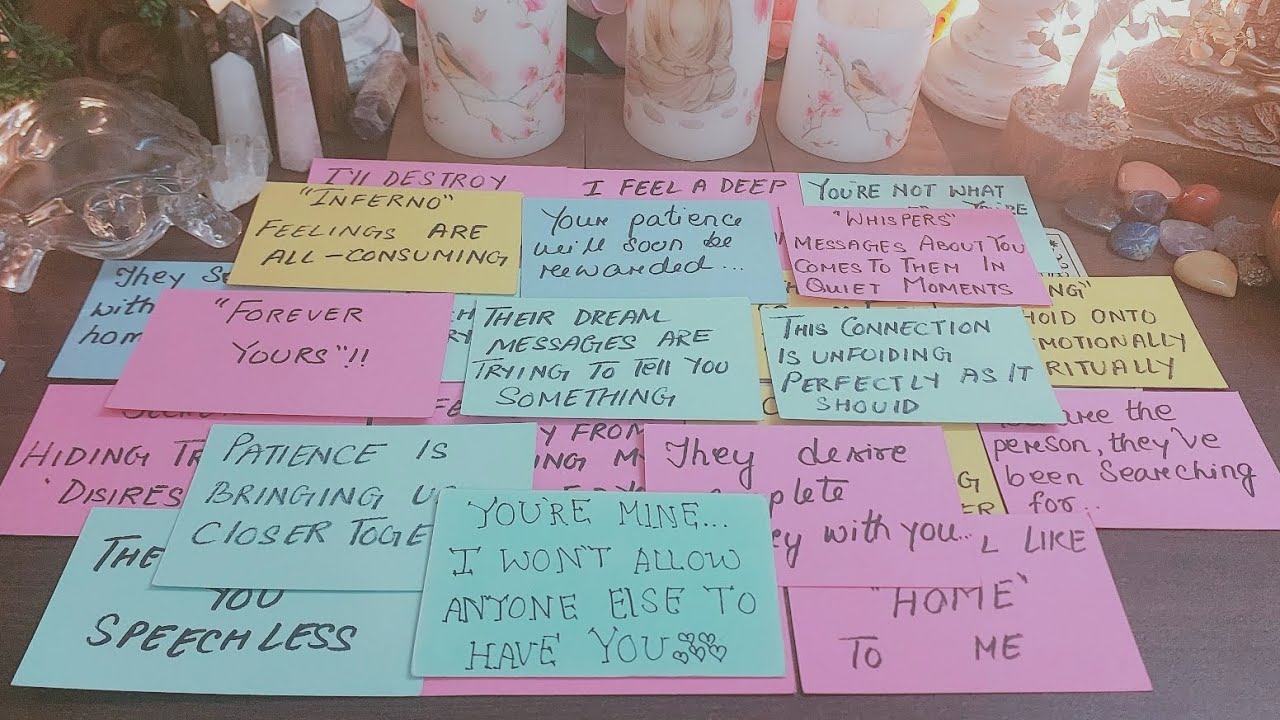 I'll DESTROY
"INFERNO"
FEELINGS ARE
ALL-CONSUMING
I FEEL A DEEP
Your patience
will soon be
rewarded...
YOU'RE NOT WHAT
YOU'RE
"WHISPERS"
MESSAGES ABOUT YOU
COMES TO THEM IN
QUIET MOMENTS
They
with
"FOREVER
YOURS"!!
THEIR DREAM
MESSAGES ARE
TRYING TO TEll YOU
SOMETHING
THIS CONNECTION
IS UNFOlDING
PERFECTLY AS IT
SHOUlD
HOlD ONTO
HIDING
DISIRES
PATIENCE IS
BRINGING
CLOSER
FROM
They desire
with you..
are the
person, they've
been Searching
for..
YOU
SPEECHLESS
YOU'RE MINE...
I WON'T ALLOW
ANYONE ElSE TO
HAVE YOU
LIKE
"HOME"
TO ME